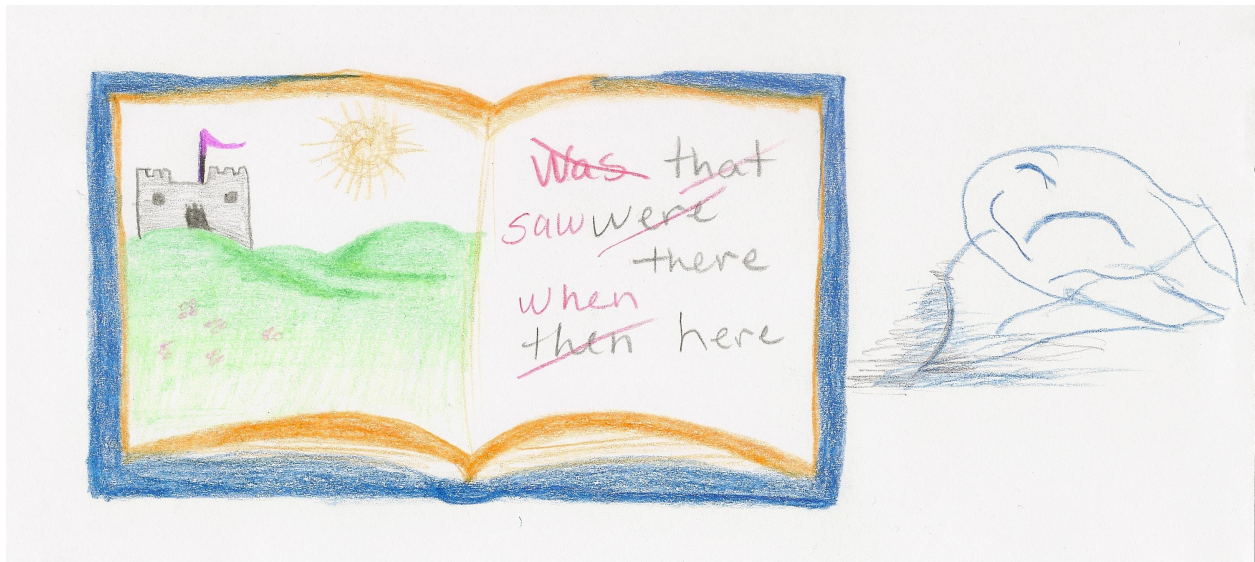 Was that
saw were
there
when
then here